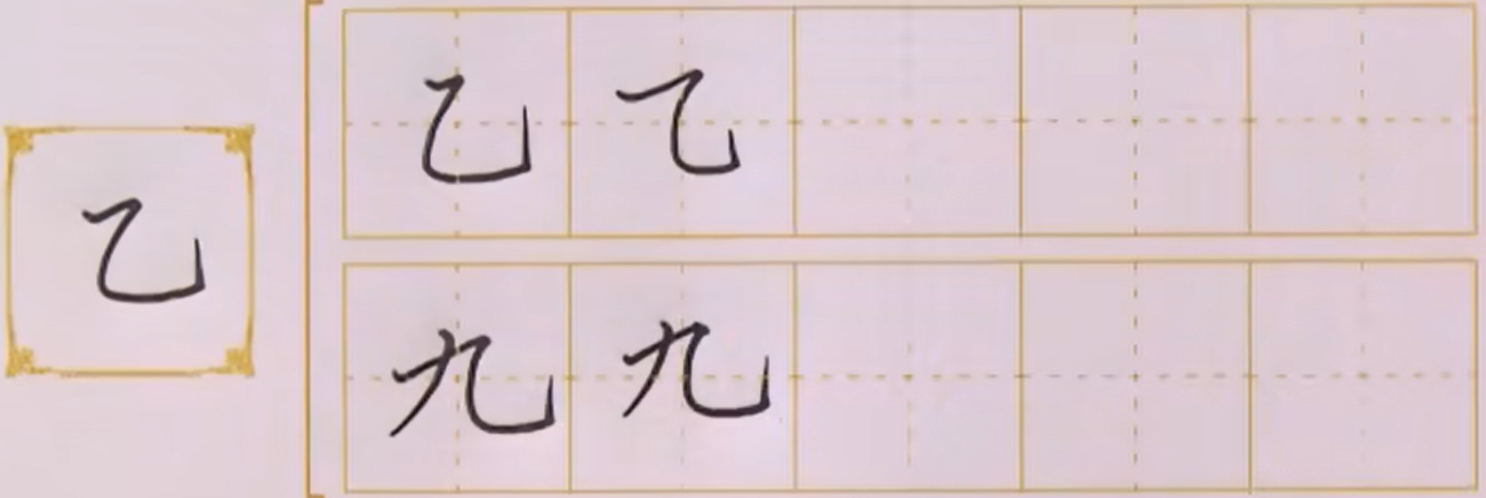 乙
乙 乙
九 九